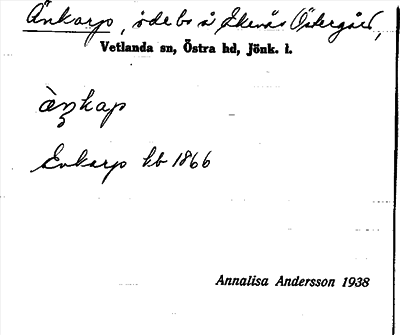 Änkarp, öde bs å Ekenäs Östergård,
Vetlanda sn, Östra hd, Jönk. l.
ànkap
Enkarp kb 1866
Annalisa Andersson 1938